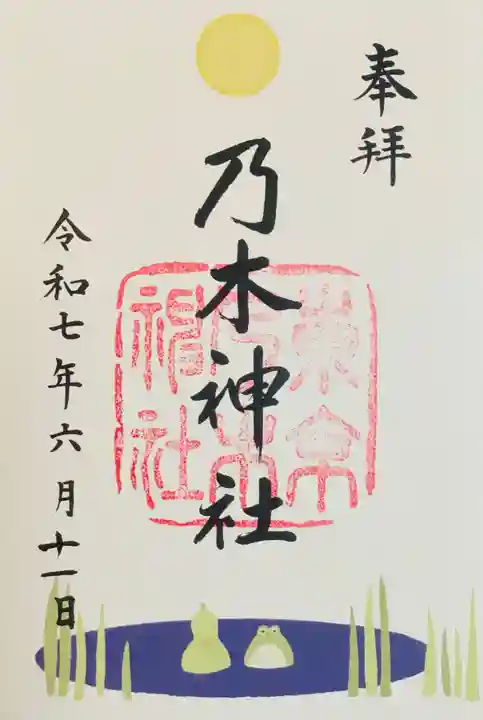 奉拝
乃木神社
東京
乃木
神社
令和七年六月十一日